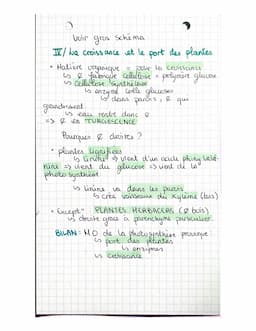 Voir gros schéma
IV/ La croissance et le port des plantes
• Matière organique = pour la croissance
↳ fabrique cellulose = polymère glucose
↳ cellulose synthétase
↳ enzyme colle glucoses
↳ dans parois, qui
grandissent.
↳ eau rentre dans
⇒ TURGESCENCE
Pourquoi droites ?
• plantes lignifiées
↳ lignine ⇒ vient d'un acide
⇒ vient du glucose ⇒ vient de la
photosynthèse
↳ lignine va dans les parois
↳ crée vaisseaux du xylème (bois)
• Except° PLANTES HERBACÉES (Ø bois)
↳ droite grâce à parenchyme particulier
BILAN: MO de la photosynthèse provoque :
↳ port des plantes
↳ enzymes
↳ croissance